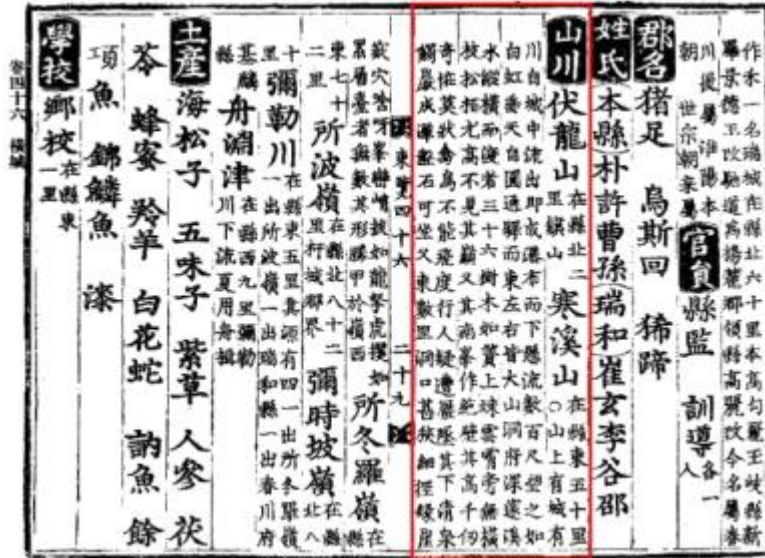 作禾一名瑞城在縣北六十里本高句麗王岐縣新
羅景德王改馳道爲楊麓郡領縣高麗改今名屬春
川後屬淮陽本
朝 世宗朝來屬
官員 縣監 訓導 各一人
郡名 猪足 烏斯回 狶蹄
姓氏 本縣 朴許曹孫 瑞和 崔玄李谷邵
山川 伏龍山 在縣北二里鎮山 寒溪山 在縣東五十里○山上有城有
川自城中流出即成瀑布而下懸流數百尺望之如
白虹垂天自圓通驛而東左右皆大山洞府深邃溪
水縱橫而渡者三十六樹木如簀上竦雲霄旁無橫
枝松栢尤高不見其巓又其南峯作絶壁其高千仞
奇恠莫狀禽鳥不能飛度行人疑遭壓墜其下清泉
觸巖成潭盤石可坐又東數里洞口甚狹細徑緣崖
東覽四十六 二十九
嵌穴唅呀峯巒峭拔如龍拏虎攫如
累層臺者無數其形勝甲於嶺西
所冬羅嶺 在縣東七十二里 所波嶺 在縣北八十二里杆城郡界 彌時坡嶺 在縣北八十里
彌勒川 在縣東五里其源有四一出所冬羅嶺
一出所波嶺一出瑞和縣一出春川府
基麟縣 舟淵津 在縣西九里彌勒川下流夏用舟楫
土産 海松子 五味子 紫草 人參 茯
苓 蜂蜜 羚羊 白花蛇 訥魚 餘
項魚 錦鱗魚 漆
學校 鄉校 在縣東一里
卷四十六 橫城